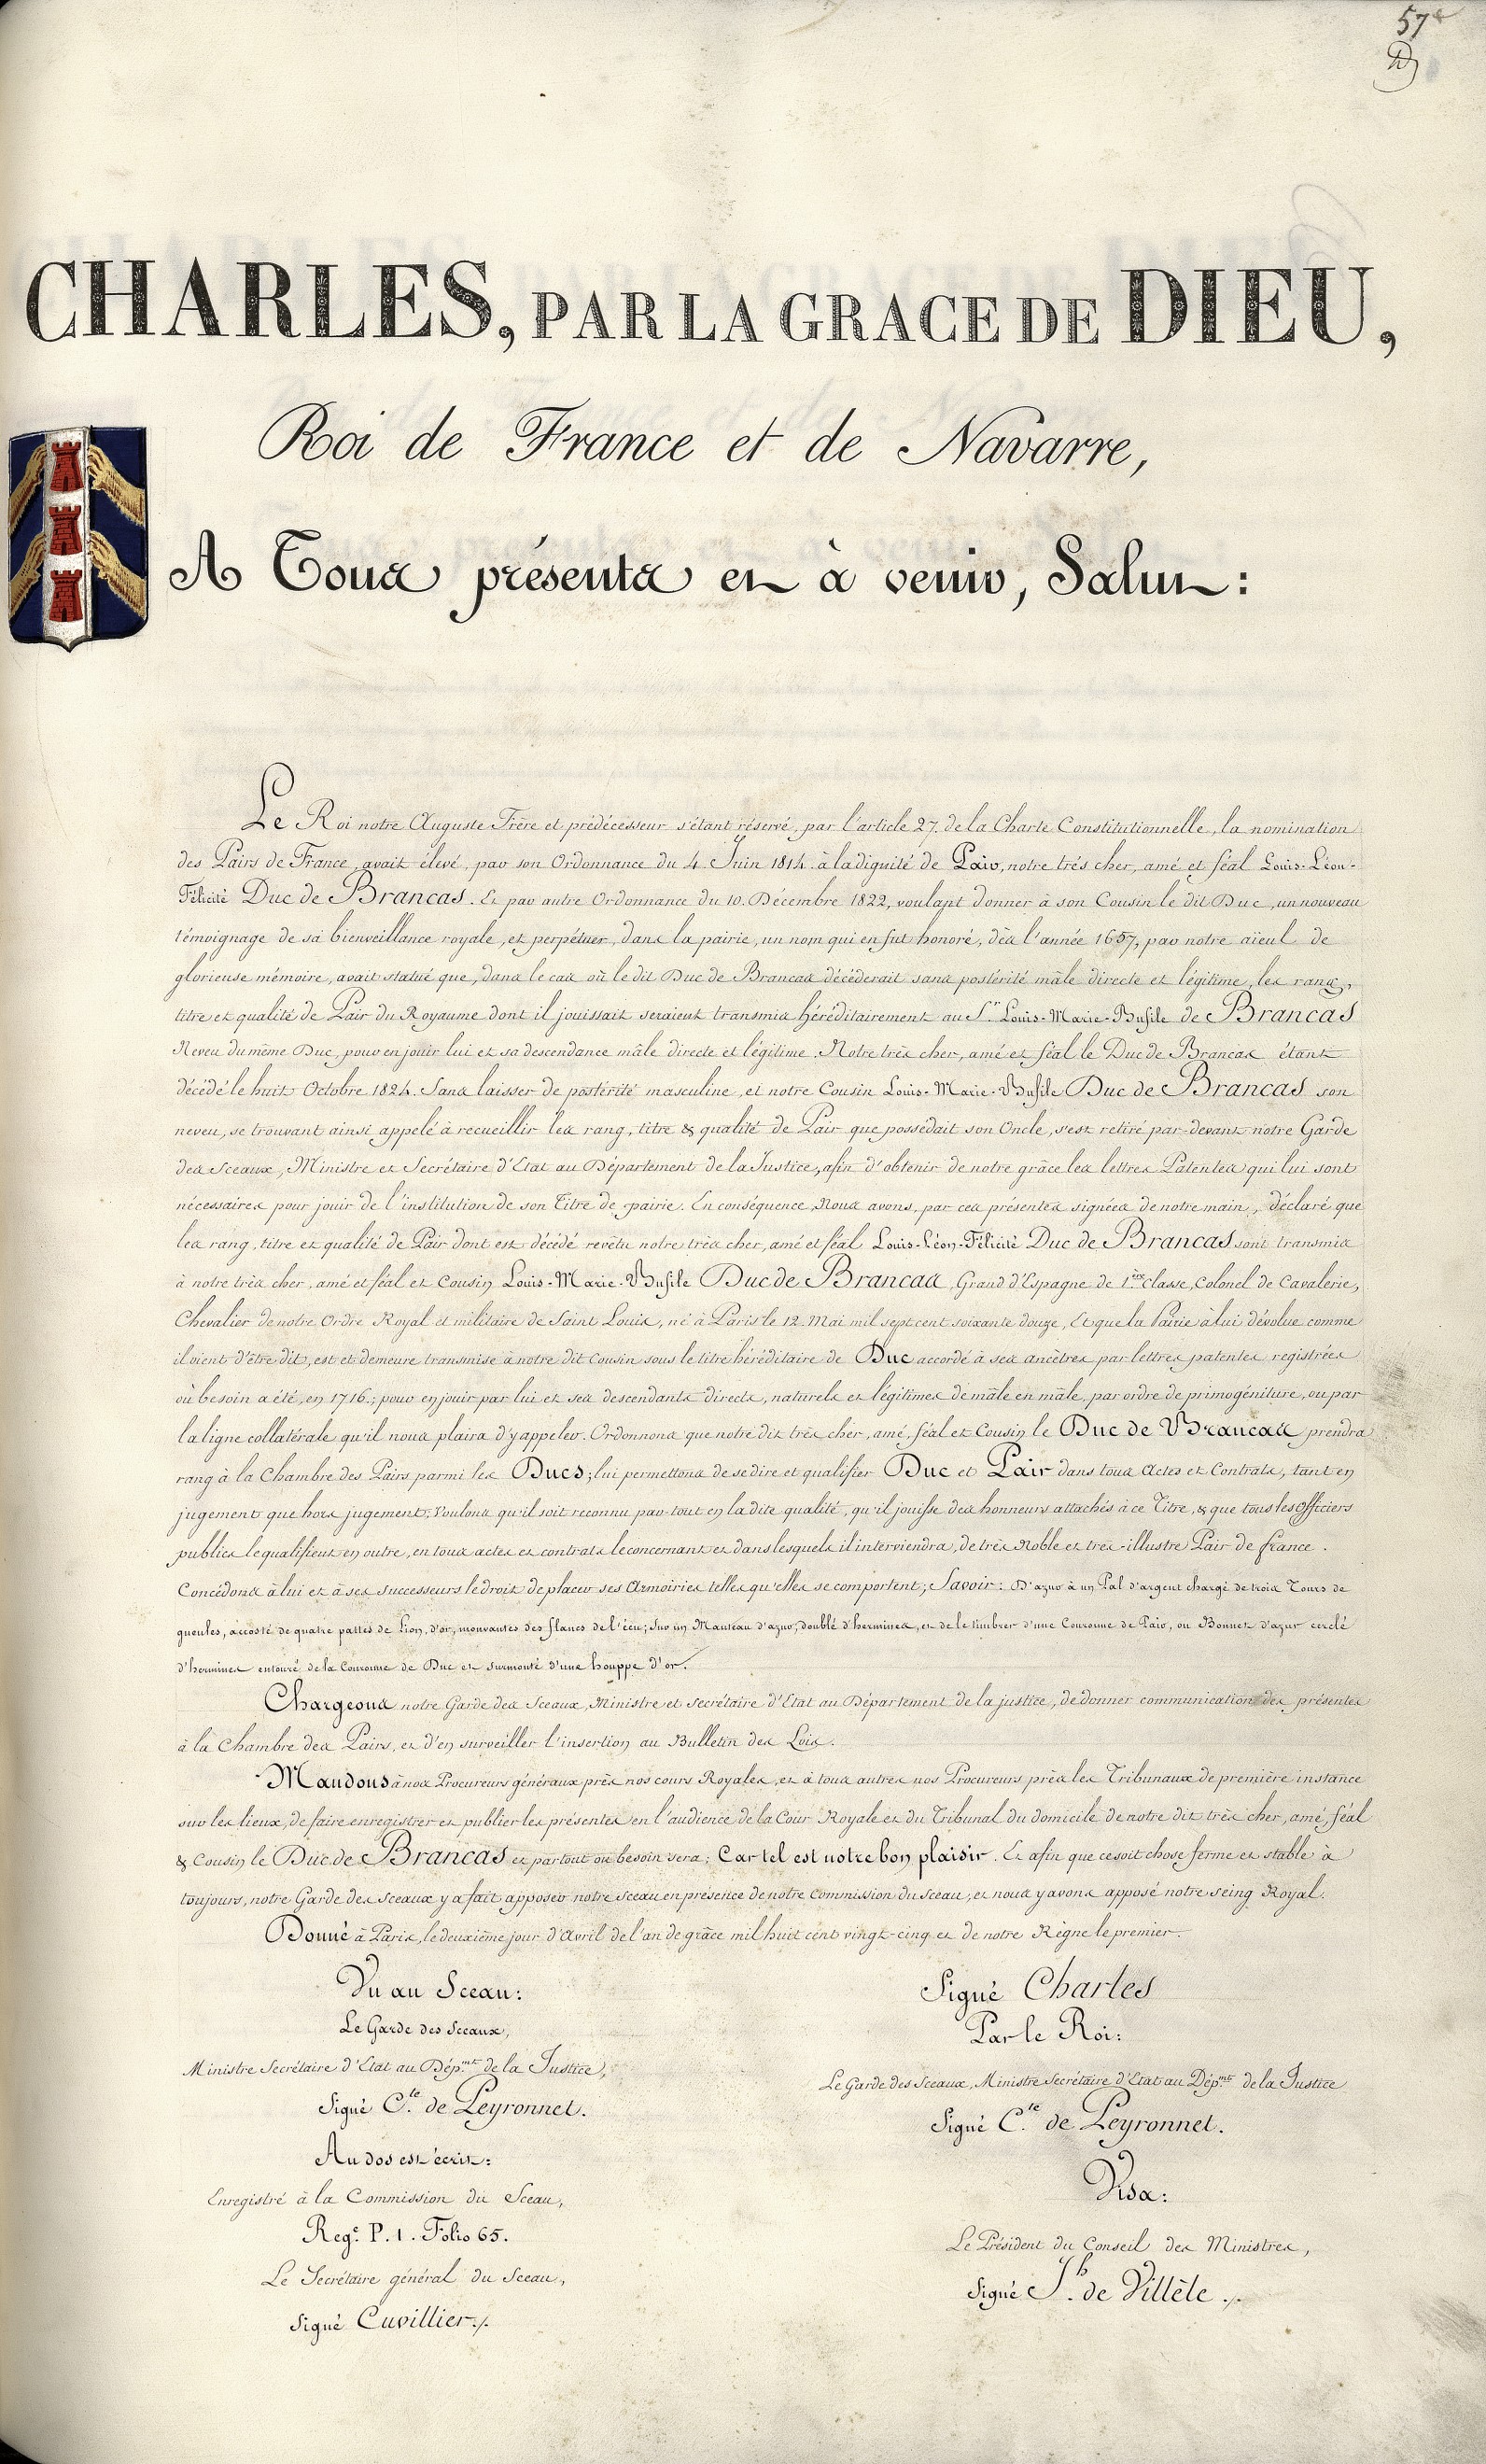 57e
CHARLES, PAR LA GRACE DE DIEU,
Roi de France et de Navarre,
A Tous présents et à venir, Salut :
Le Roi notre Auguste Frère et prédécesseur s'étant réservé, par l'article 27, de la Charte Constitutionnelle, la nomination
des Pairs de France, avait élevé, par son Ordonnance du 4 Juin 1814. à la dignité de Pair, notre très cher, amé et féal Louis-Léon-
Félicité Duc de Brancas. Et par autre Ordonnance du 10. Décembre 1822, voulant donner à son Cousin le dit Duc, un nouveau
témoignage de sa bienveillance royale, et perpétuer, dans la pairie, un nom qui en fut honoré, dès l'année 1657, par notre aïeul de
glorieuse mémoire, avait statué que, dans le cas où le dit Duc de Brancas décéderait sans postérité mâle directe et légitime, les rang,
titre et qualité de Pair du Royaume dont il jouissait seraient transmis héréditairement au Sr. Louis-Marie-Bufile de Brancas
Neveu du même Duc, pour en jouir lui et sa descendance mâle directe et légitime. Notre très cher, amé et féal le Duc de Brancas étant
décédé le huit Octobre 1824. Sans laisser de postérité masculine, et notre Cousin Louis-Marie-Bufile Duc de Brancas son
neveu, se trouvant ainsi appelé à recueillir les rang, titre & qualité de Pair que possédait son Oncle, s'est retiré par-devant notre Garde
des Sceaux, Ministre et Secrétaire d'Etat au Département de la Justice, afin d'obtenir de notre grâce les lettres Patentes qui lui sont
nécessaires pour jouir de l'institution de son Titre de pairie. En conséquence, Nous avons, par ces présentes signées de notre main, déclaré que
les rang, titre et qualité de Pair dont est décédé revêtu notre très cher, amé et féal Louis-Léon-Félicité Duc de Brancas sont transmis
à notre très cher, amé et féal et Cousin Louis-Marie-Bufile Duc de Brancas, Grand d'Espagne de 1ère Classe, Colonel de Cavalerie,
Chevalier de notre Ordre Royal et militaire de Saint Louis, né à Paris le 12 Mai mil sept cent soixante douze, Et que la Pairie à lui dévolue comme
il vient d'être dit, est et demeure transmise à notre dit Cousin sous le titre héréditaire de Duc accordé à ses ancêtres par lettres patentes registrées
où besoin a été, en 1716 ; pour en jouir par lui et ses descendants directs, naturels et légitimes de mâle en mâle, par ordre de primogéniture, ou par
la ligne collatérale qu'il nous plaira d'y appeler. Ordonnons que notre dit très cher, amé, féal et Cousin le Duc de Brancas prendra
rang à la Chambre des Pairs parmi les Ducs ; lui permettons de se dire et qualifier Duc et Pair dans tous Actes et Contrats, tant en
jugement que hors jugement ; Voulons qu'il soit reconnu par-tout en la dite qualité, qu'il jouisse des honneurs attachés à ce Titre, & que tous les Officiers
publics le qualifient en outre, en tous actes et contrats le concernant et dans lesquels il interviendra, de très Noble et très-illustre Pair de france.
Concédons à lui et à ses successeurs le droit de placer ses Armoiries telles qu'elles se comportent ; Savoir : D'azur à un Pal d'argent chargé de trois Tours de
gueules, accosté de quatre pattes de Lion, d'or, mouvantes des flancs de l'écu ; Sur un Manteau d'azur, doublé d'hermines, et de le timbrer d'une Couronne de Pair, ou Bonnet d'azur cerclé
d'hermines entouré de la Couronne de Duc et surmonté d'une houppe d'or.
Chargeons notre Garde des Sceaux, Ministre et secrétaire d'Etat au Département de la justice, de donner communication des présentes
à la Chambre des Pairs, et d'en surveiller l'insertion au Bulletin des Lois.
Mandons à nos Procureurs généraux près nos cours Royales, et à tous autres nos Procureurs près les Tribunaux de première instance
sur les lieux, de faire enregistrer et publier les présentes en l'audience de la Cour Royale et du Tribunal du domicile de notre dit très cher, amé, féal
& Cousin le Duc de Brancas et partout où besoin sera ; Car tel est notre bon plaisir. Et afin que ce soit chose ferme et stable à
toujours, notre Garde des Sceaux y a fait apposer notre sceau en présence de notre Commission du Sceau ; et nous y avons apposé notre seing Royal.
Donné à Paris, le deuxième jour d'Avril de l'an de grâce mil huit cent vingt-cinq et de notre Règne le premier.
Vu au Sceau :
Le Garde des Sceaux,
Ministre Secrétaire d'Etat au Dépmt. de la Justice,
Signé Cte. de Peyronnet.
Au dos est écrit :
Enregistré à la Commission du Sceau,
Rege. P. 1. Folio 65.
Le Secrétaire général du Sceau,
Signé Cuvillier ./.
Signé Charles
Par le Roi :
Le Garde des Sceaux, Ministre Secrétaire d'Etat au Dépmt. de la Justice
Signé Cte. de Peyronnet.
Visa :
Le Président du Conseil des Ministres,
Signé Jh. de Villèle ./.